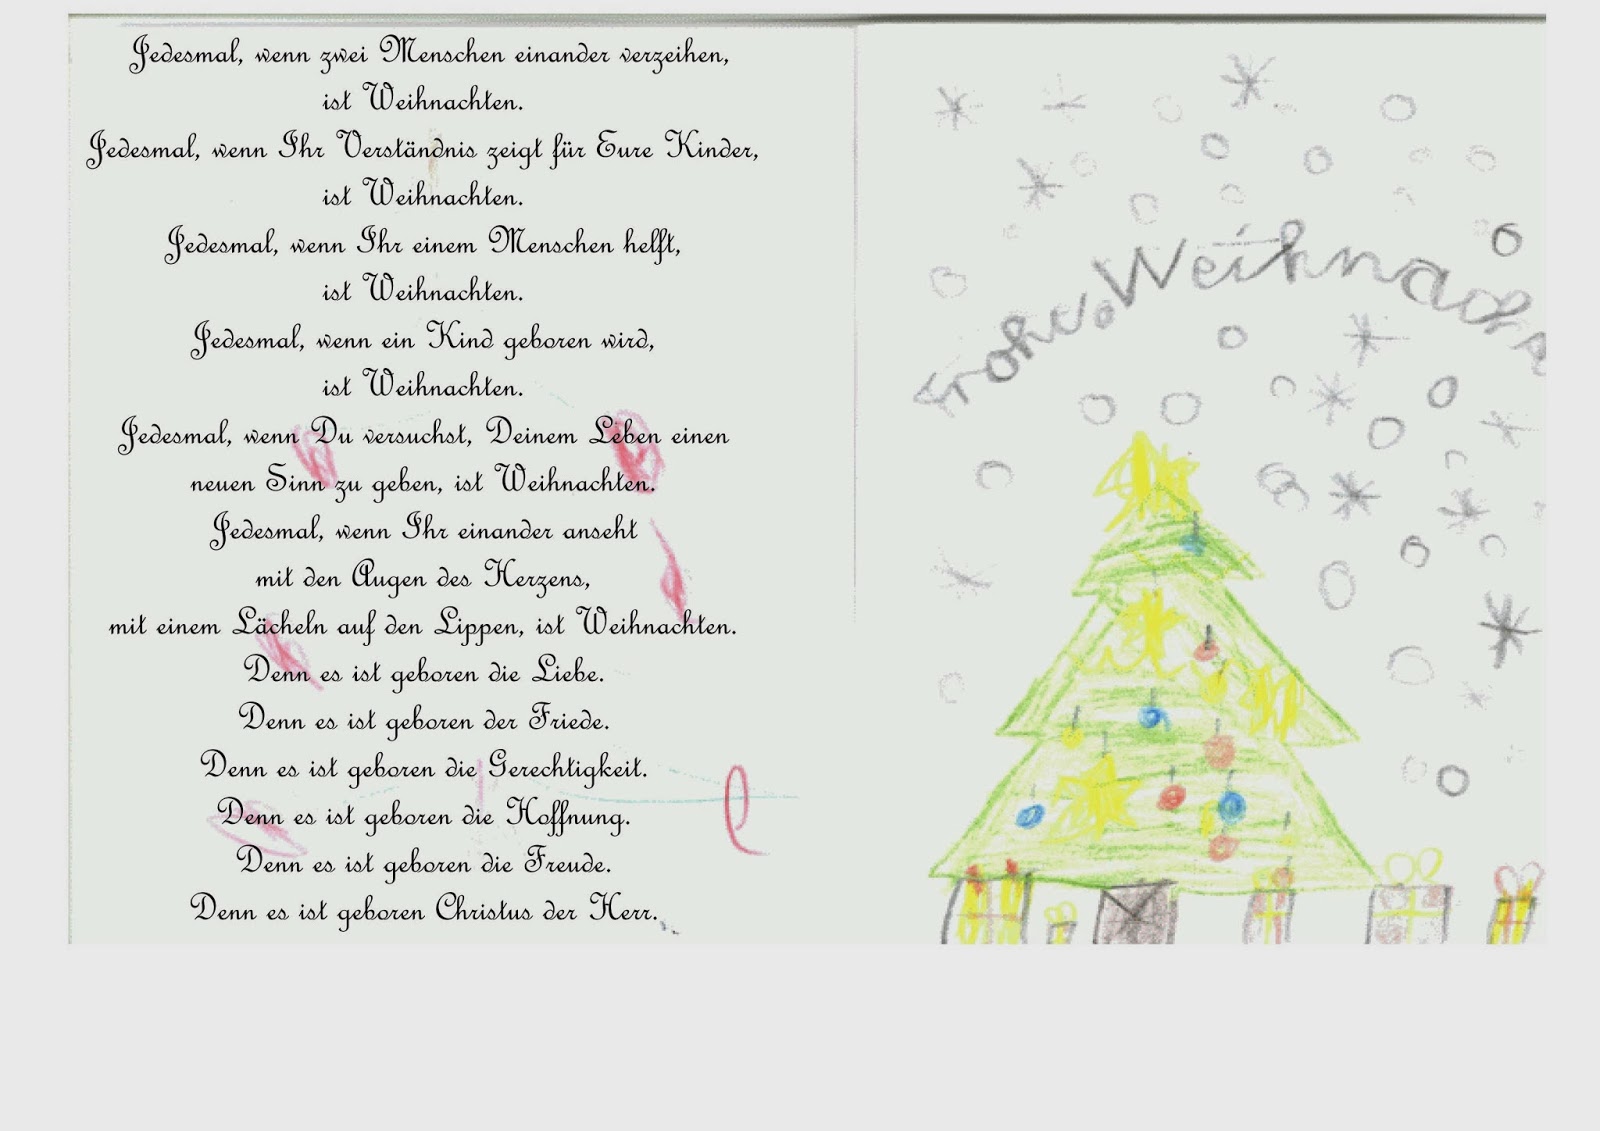 Jedesmal, wenn zwei Menschen einander verzeihen,
ist Weihnachten.
Jedesmal, wenn Ihr Verständnis zeigt für Eure Kinder,
ist Weihnachten.
Jedesmal, wenn Ihr einem Menschen helft,
ist Weihnachten.
Jedesmal, wenn ein Kind geboren wird,
ist Weihnachten.
Jedesmal, wenn Du versuchst, Deinem Leben einen
neuen Sinn zu geben, ist Weihnachten.
Jedesmal, wenn Ihr einander anseht
mit den Augen des Herzens,
mit einem Lächeln auf den Lippen, ist Weihnachten.
Denn es ist geboren die Liebe.
Denn es ist geboren der Friede.
Denn es ist geboren die Gerechtigkeit.
Denn es ist geboren die Hoffnung.
Denn es ist geboren die Freude.
Denn es ist geboren Christus der Herr.
Frohe Weihnach